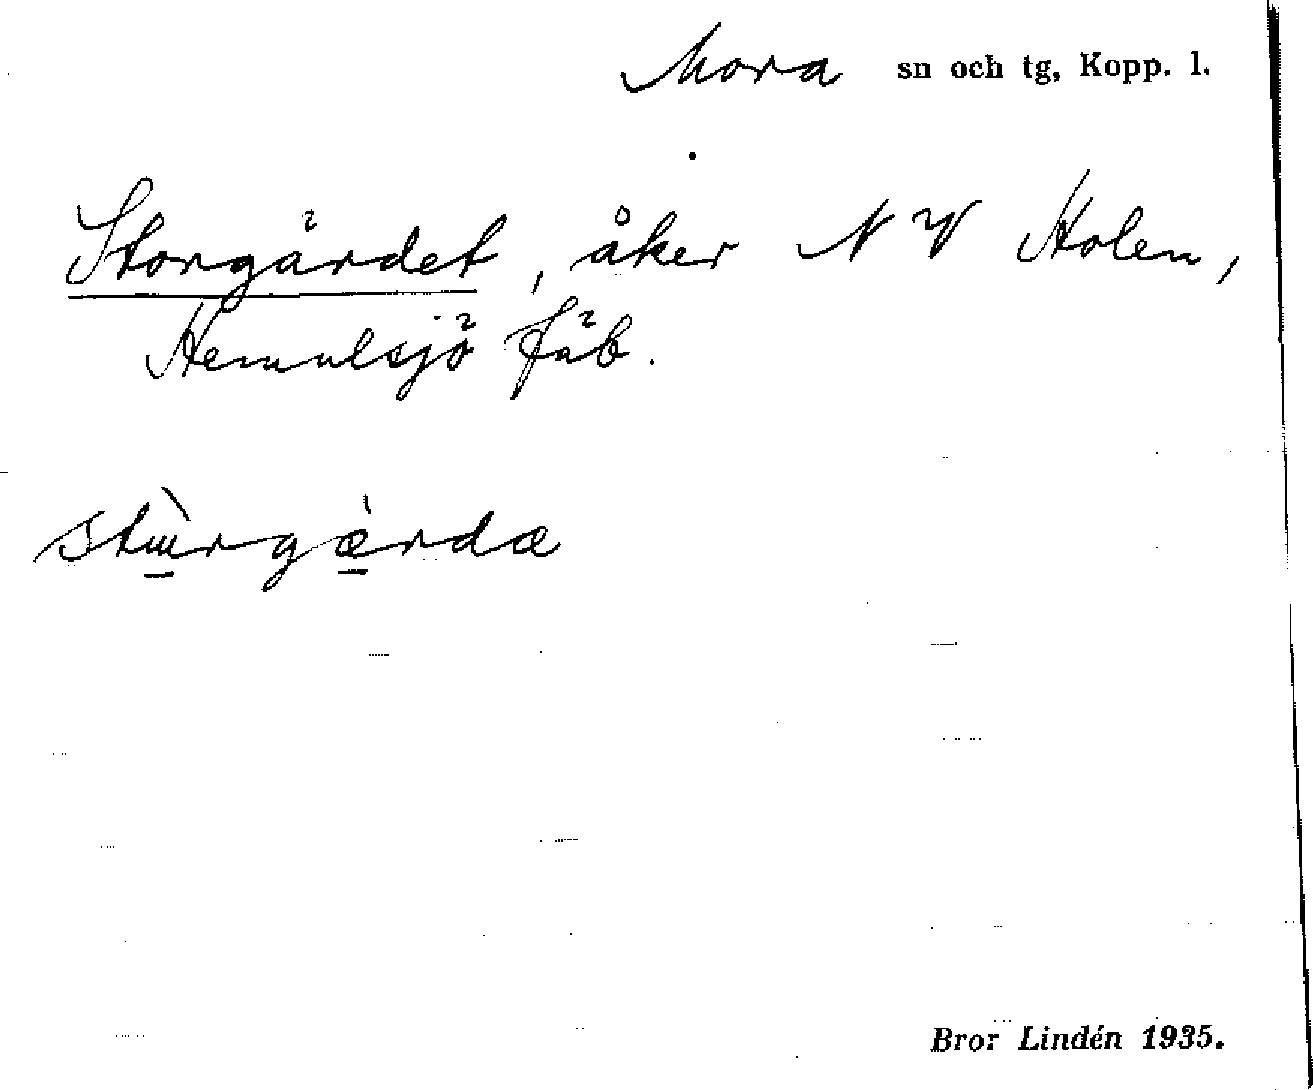 Mora sn och tg, Kopp. l.
Storgärdet, åker NV Holen,
Hemulsjö fäb.
Bror Lindén 1935.